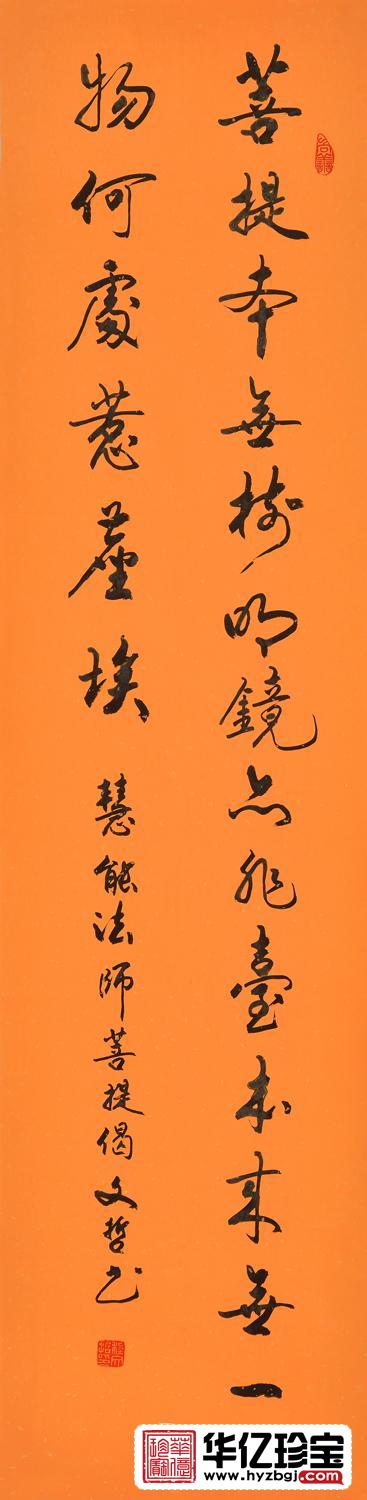 菩提本無樹明鏡亦非臺本來無一
物何處惹塵埃
慧能法師菩提偈 文哲书
華億珍寶
华亿珍宝
www.hyzbgj.com